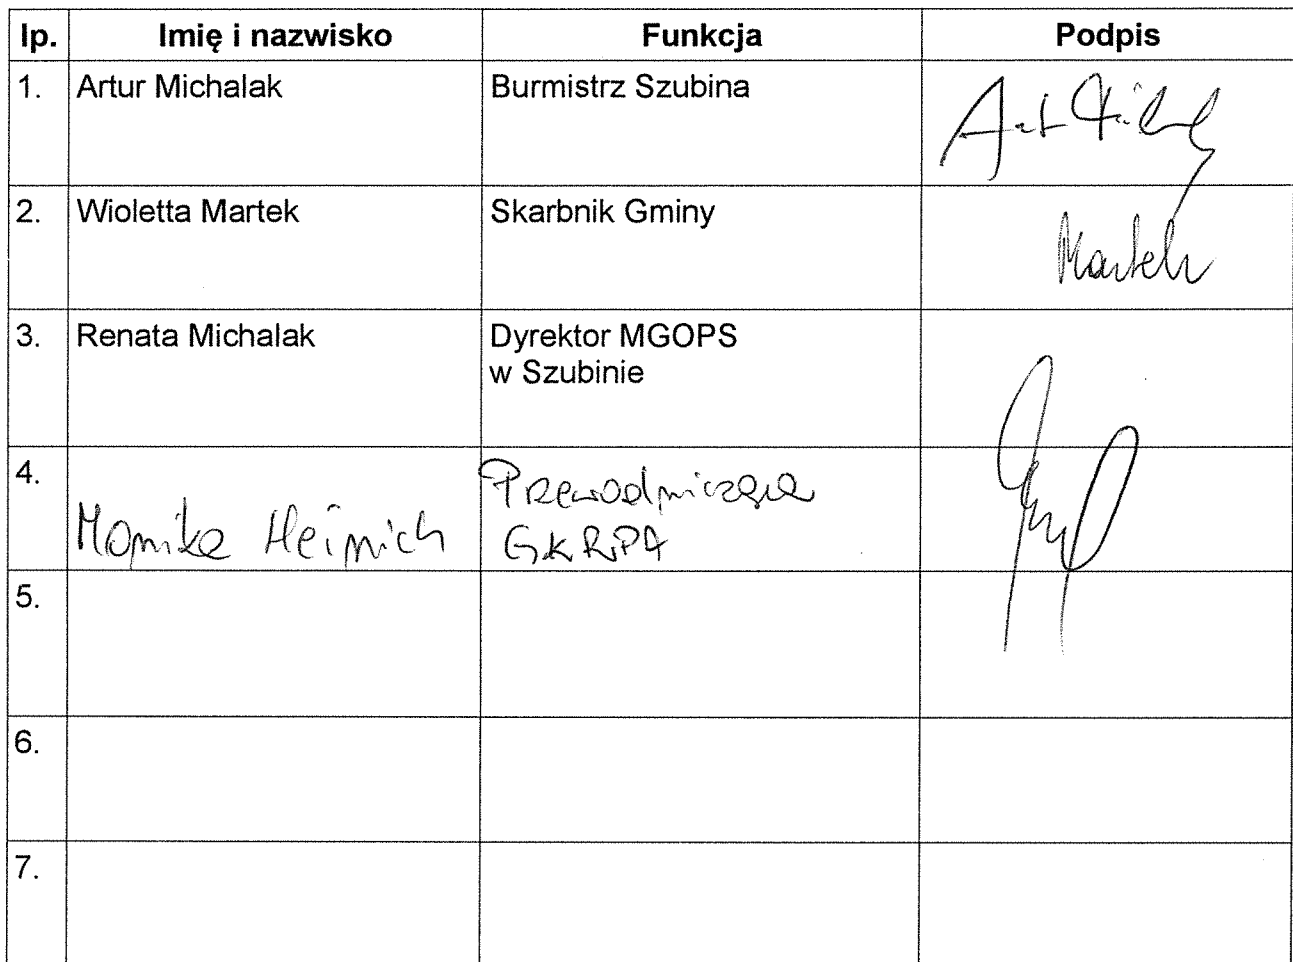 lp. Imię i nazwisko Funkcja Podpis
1. Artur Michalak Burmistrz Szubina
2. Wioletta Martek Skarbnik Gminy Martek
3. Renata Michalak Dyrektor MGOPS
w Szubinie
4. Przewodnicząca
Monika Heinrich GKRPA
5.
6.
7.